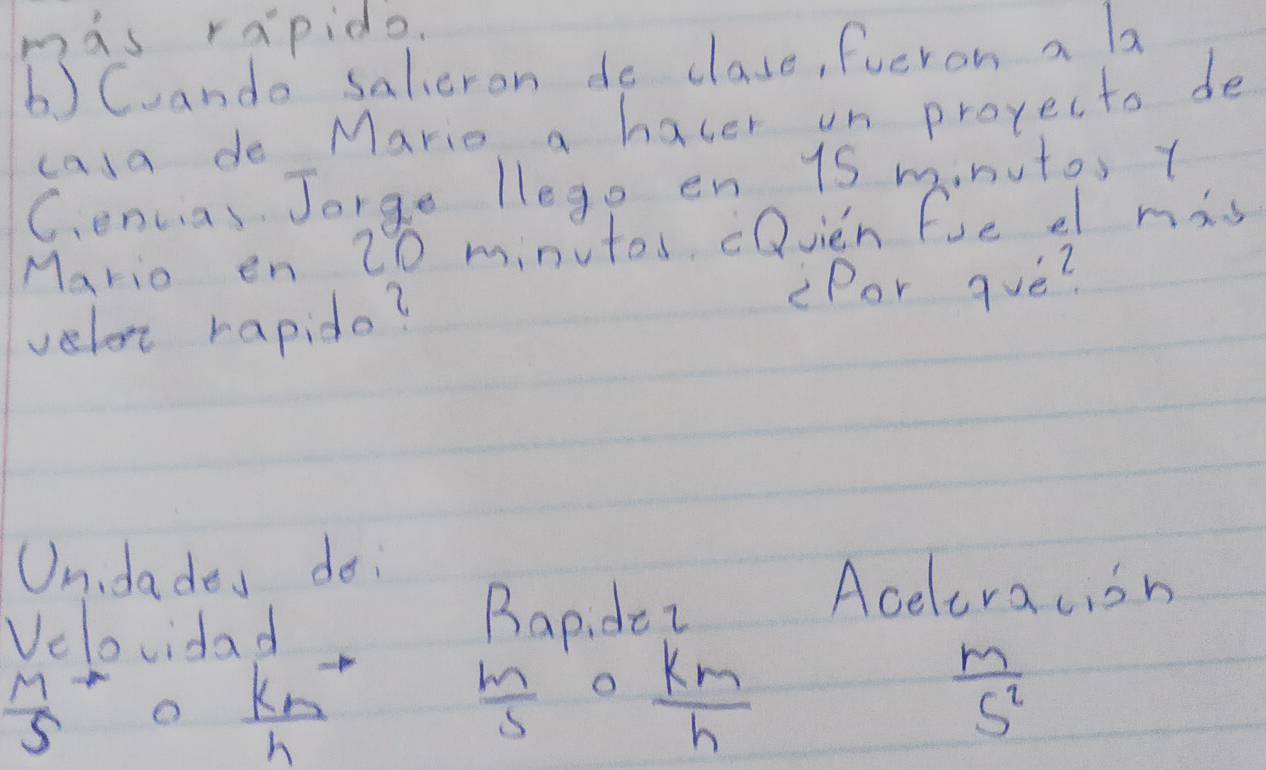 más rápido.
b) Cuando salieron de clase, fueron a la
casa de Mario a hacer un proyecto de
Ciencias. Jorge llego en 15 minutos y
Mario en 20 minutos. ¿Quién fue el más
veloz rapido? ¿Por qué?
Unidades de:
Velocidad Rapidez Aceleración
m/s → o km/h → m/s o km/h m/s²